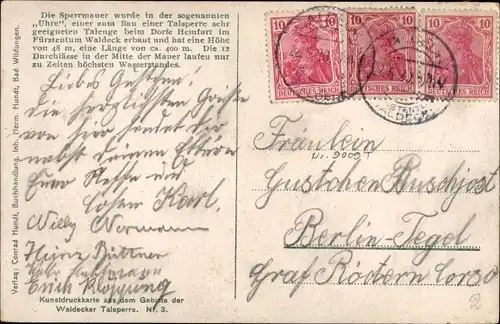 Die Sperrmauer wurde in der sogenannten
„Uhre", einer zum Bau einer Talsperre sehr
geeigneten Talenge beim Dorfe Hemfurt im
Fürstentum Waldeck erbaut und hat eine Höhe
von 48 m, eine Länge von ca. 400 m. Die 12
Durchlässe in der Mitte der Mauer laufen nur
zu Zeiten höchsten Wasserstandes.
Liebes
die herzlichsten Grüße
von hier sendet dir
nebst deinen Eltern
Euer Neffe und
Karl.
Willy Wermann
Heinz Büttner
Erich
Kunstdruckkarte aus dem Gebiete der
Waldecker Talsperre. Nr. 3.
Verlag: Conrad Hundt, Buchhandlung, Inh. Herm. Hundt, Bad Wildungen.
10 10 10 10 10
DEUTSCHES REICH DEUTSCHES REICH DEUTSCHES REICH
WALDECK
Fräulein
Nr. 9009T
Gustchen Buschjost
Berlin-Tegel
Graf Rödern Corso
2